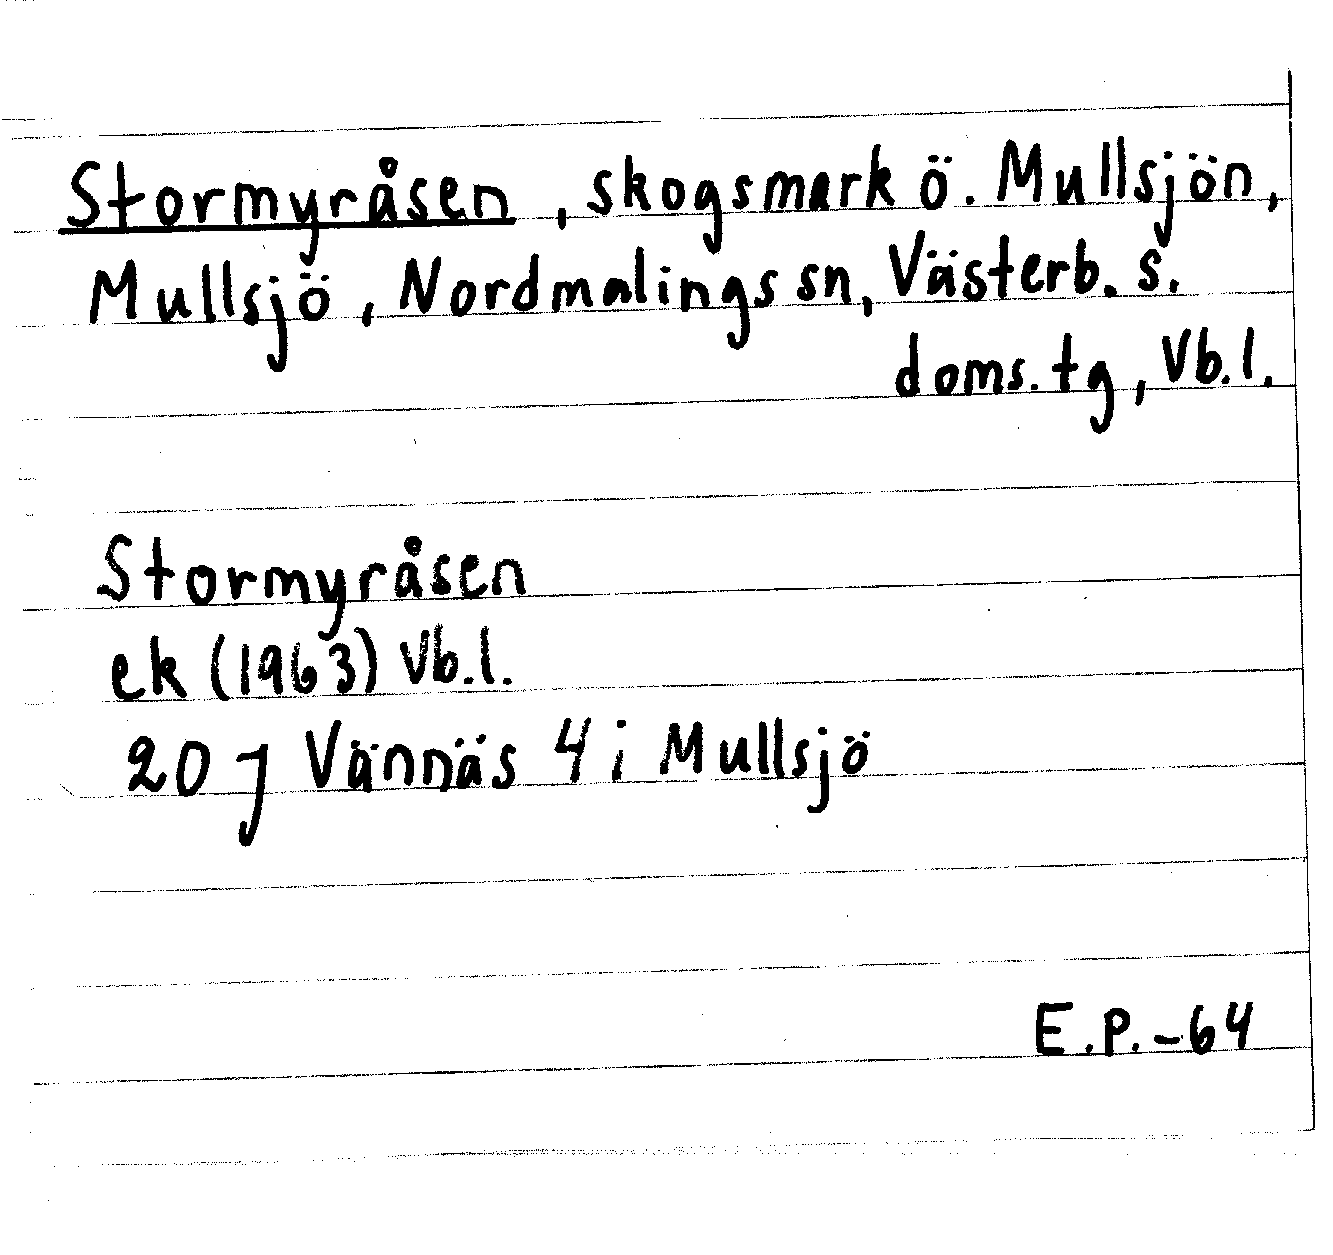 Stormyråsen, skogsmark ö. Mullsjön,
Mullsjö, Nordmalings sn, Västerb. s.
doms. tg, Vb.l.
Stormyråsen
ek (1963) Vb.l.
20 J Vännäs 4 i Mullsjö
E.P.-64